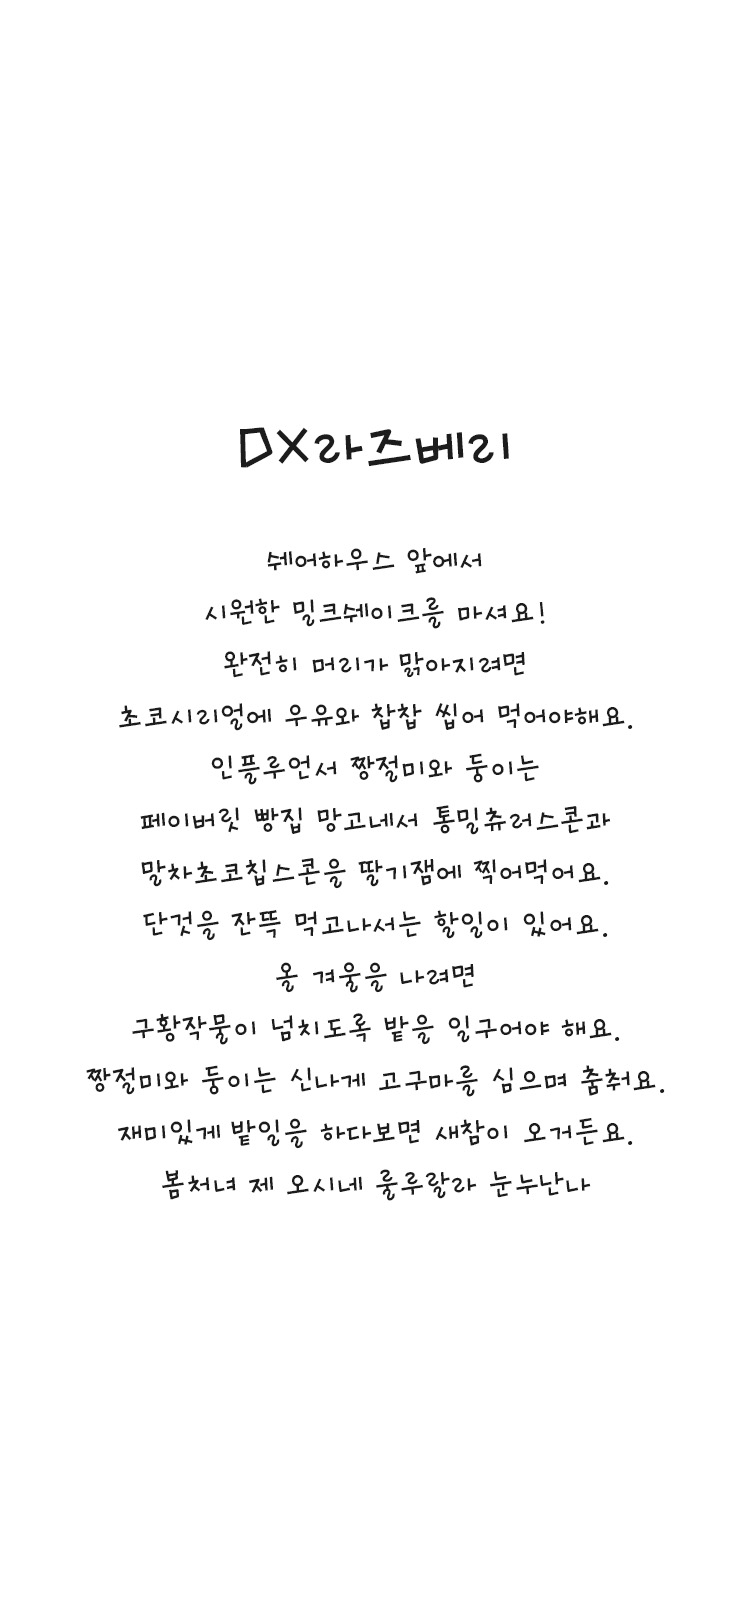 DX라즈베리
쉐어하우스 앞에서
시원한 밀크쉐이크를 마셔요!
완전히 머리가 맑아지려면
초코시리얼에 우유와 찹찹 씹어 먹어야해요.
인플루언서 짱절미와 둥이는
페이버릿 빵집 망고네서 통밀츄러스콘과
말차초코칩스콘을 딸기잼에 찍어먹어요.
단것을 잔뜩 먹고나서는 할일이 있어요.
올 겨울을 나려면
구황작물이 넘치도록 밭을 일구어야 해요.
짱절미와 둥이는 신나게 고구마를 심으며 춤춰요.
재미있게 밭일을 하다보면 새참이 오거든요.
봄처녀 제 오시네 룰루랄라 눈누난나